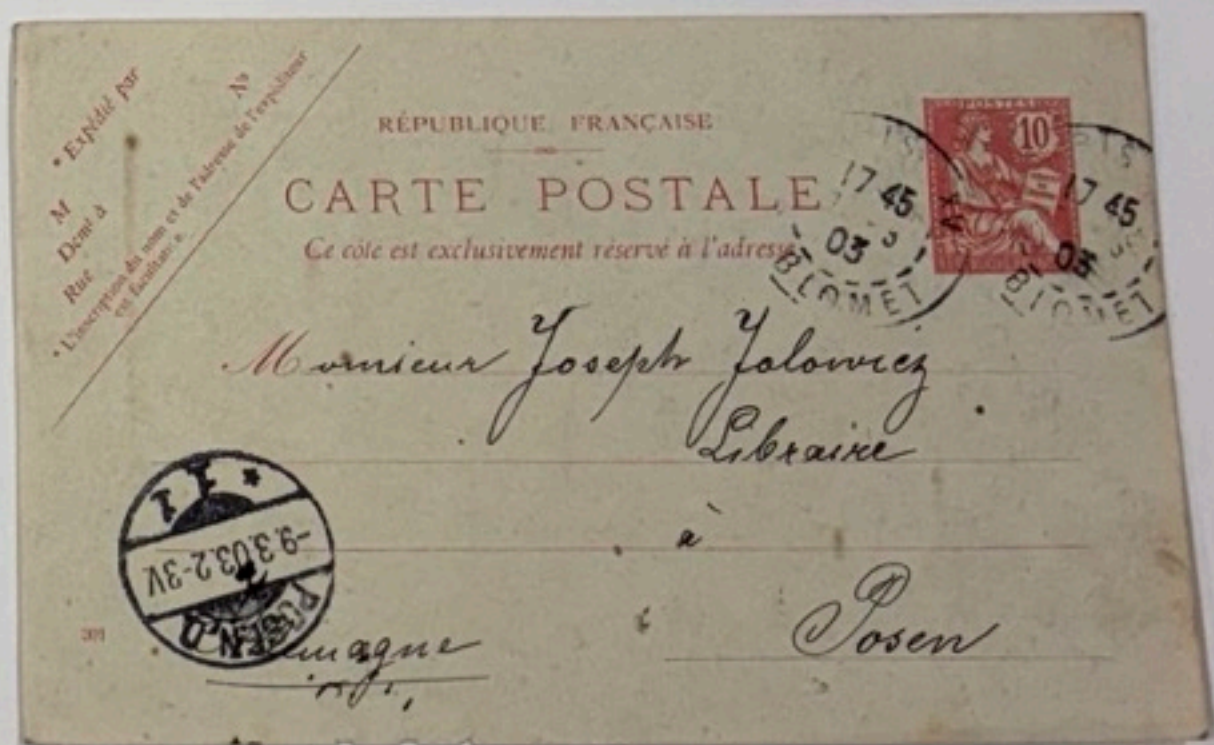 * Expédié par
M Nº
Demt à
Rue
* L'inscription du nom et de l'adresse de l'expéditeur
est facultative.
RÉPUBLIQUE FRANÇAISE
CARTE POSTALE
Ce côté est exclusivement réservé à l'adresse
POSTES
10
17 45
03
BLOMET
XV
17 45
03
BLOMET
Monsieur Joseph Jolowicz
Libraire
à
Posen
1 1
-9.3.03.2-3V.
POSEN O
301